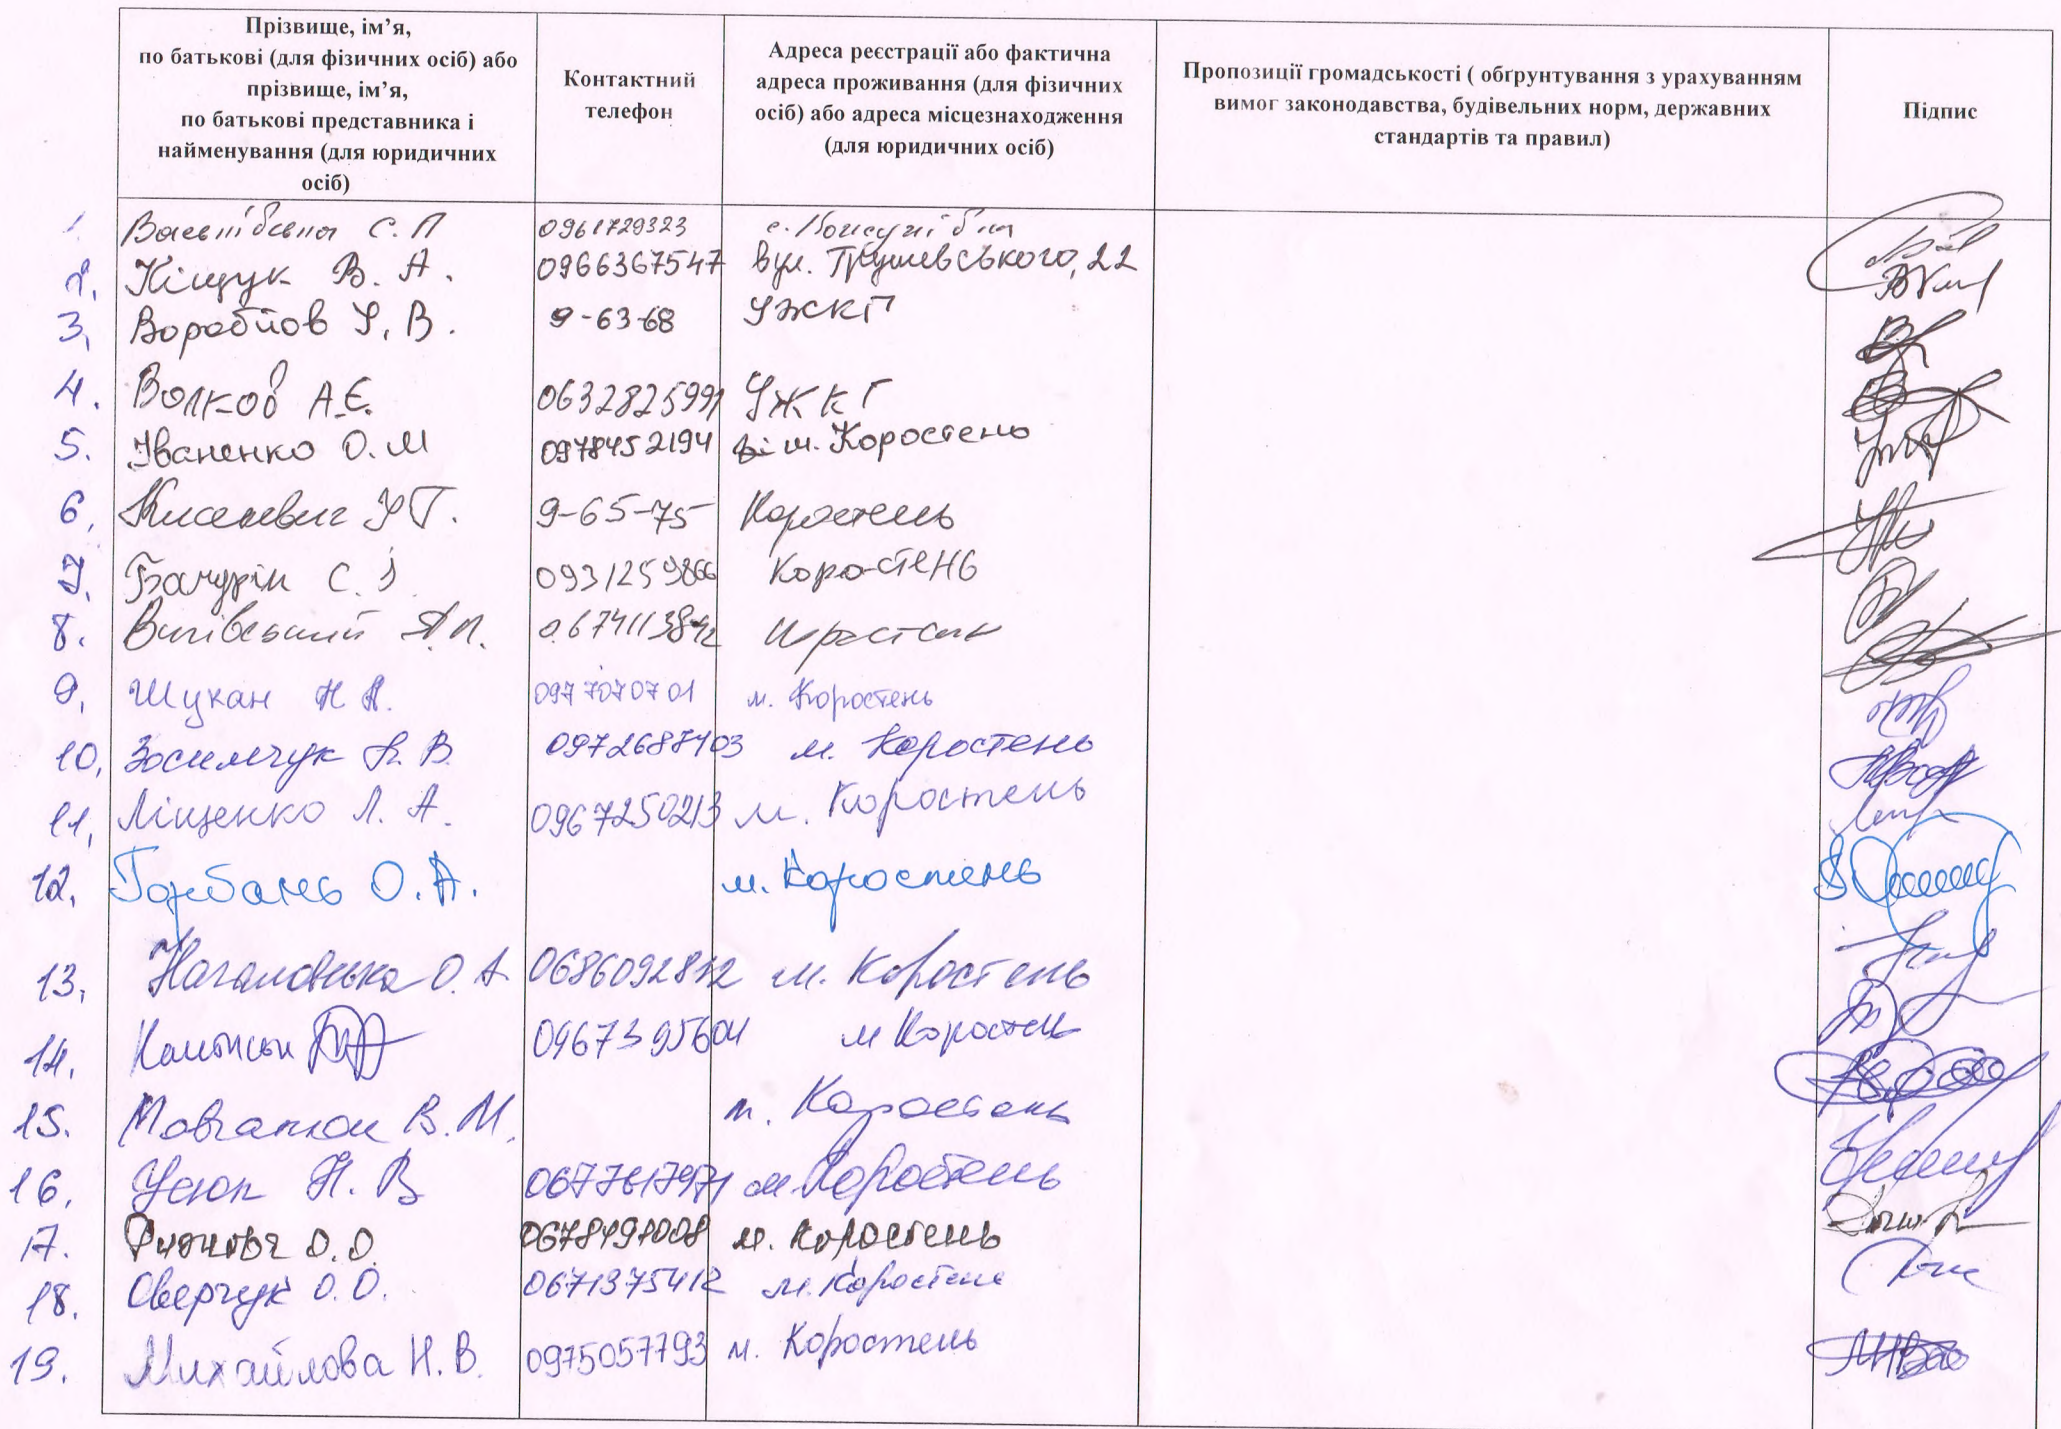 Прізвище, ім’я,
по батькові (для фізичних осіб) або
прізвище, ім’я,
по батькові представника і
найменування (для юридичних
осіб)
Контактний
телефон
Адреса реєстрації або фактична
адреса проживання (для фізичних
осіб) або адреса місцезнаходження
(для юридичних осіб)
Пропозиції громадськості ( обґрунтування з урахуванням
вимог законодавства, будівельних норм, державних
стандартів та правил)
Підпис
1. С. П 0961729323 с.
2. Кіщук В. А. 0966367547 вул. Грушевського, 22
3. Воробйов У, В. 9-63-68 УЖКГ
4. Волков А.Є. 0632825991 УЖКГ
5. Іваненко О. М 0978452194 м. Коростень
6. 9-65-75 Коростень
7. С. І 0931259866 Коростень
8. 0674113842
9. Шукан Н А. 0977070701 м. Коростень
10. Зосимчук Н. В. 0972687403 м. Коростень
11. Ліщенко Л. А. 0967250213 м. Коростень
12. Горбань О. А. м. Коростень
13. О. А 0686092812 м. Коростень
14. 0967395601 м Коростень
15. В. М. м. Коростень
16. Усюк Н. В 0677617971 м. Коростень
17. О. О. 0678491008 м. Коростень
18. Оверчук О. О. 0671375412 м. Коростень
19. Михайлова Н. В. 0975057793 м. Коростень